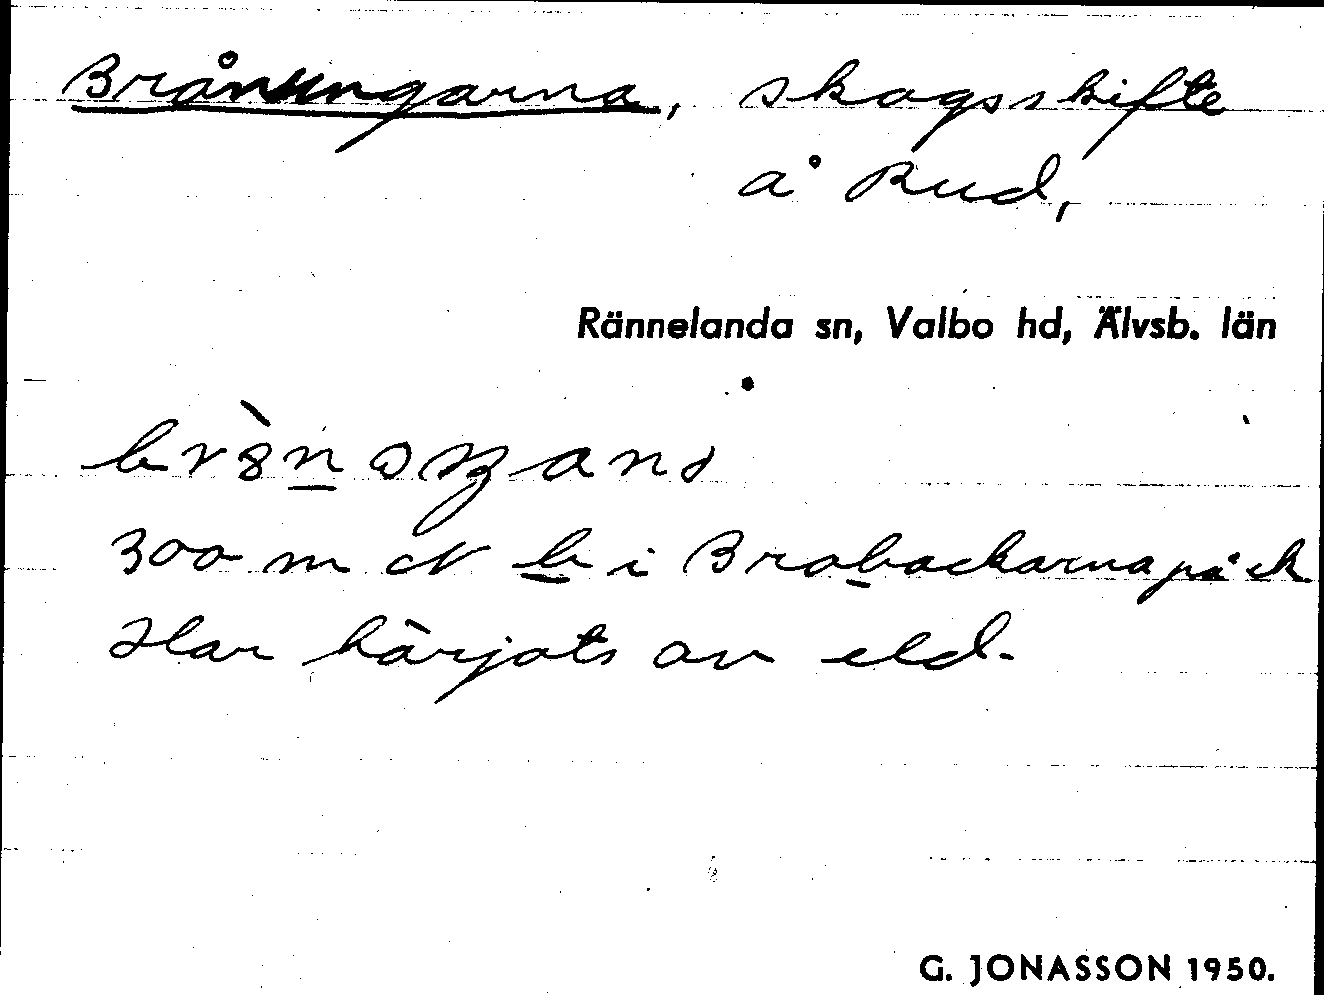 Brånungarna, skogsskifte
å Rud,
Rännelanda sn, Valbo hd, Älvsb. län
300 m N b i Brobackarna på ek
Har härjats av eld.
G. JONASSON 1950.